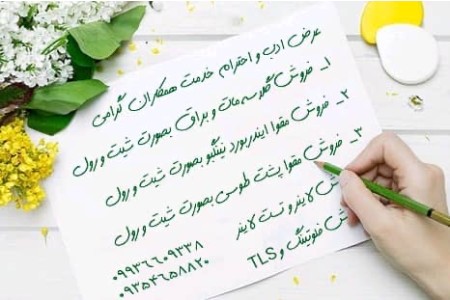 عرض ادب و احترام خدمت همکاران گرامی
۱_ فروش گلاسه مات و براق بصورت شیت و رول
۲_ فروش مقوا ایندربورد نینگبو بصورت شیت و رول
۳_ فروش مقوا پشت طوسی بصورت شیت و رول
لاینر و تست لاینر
فلوتینگ و TLS
۰۹۹۳۶۶۰۹۳۳۸
۰۹۳۵۴۶۵۸۸۲۰